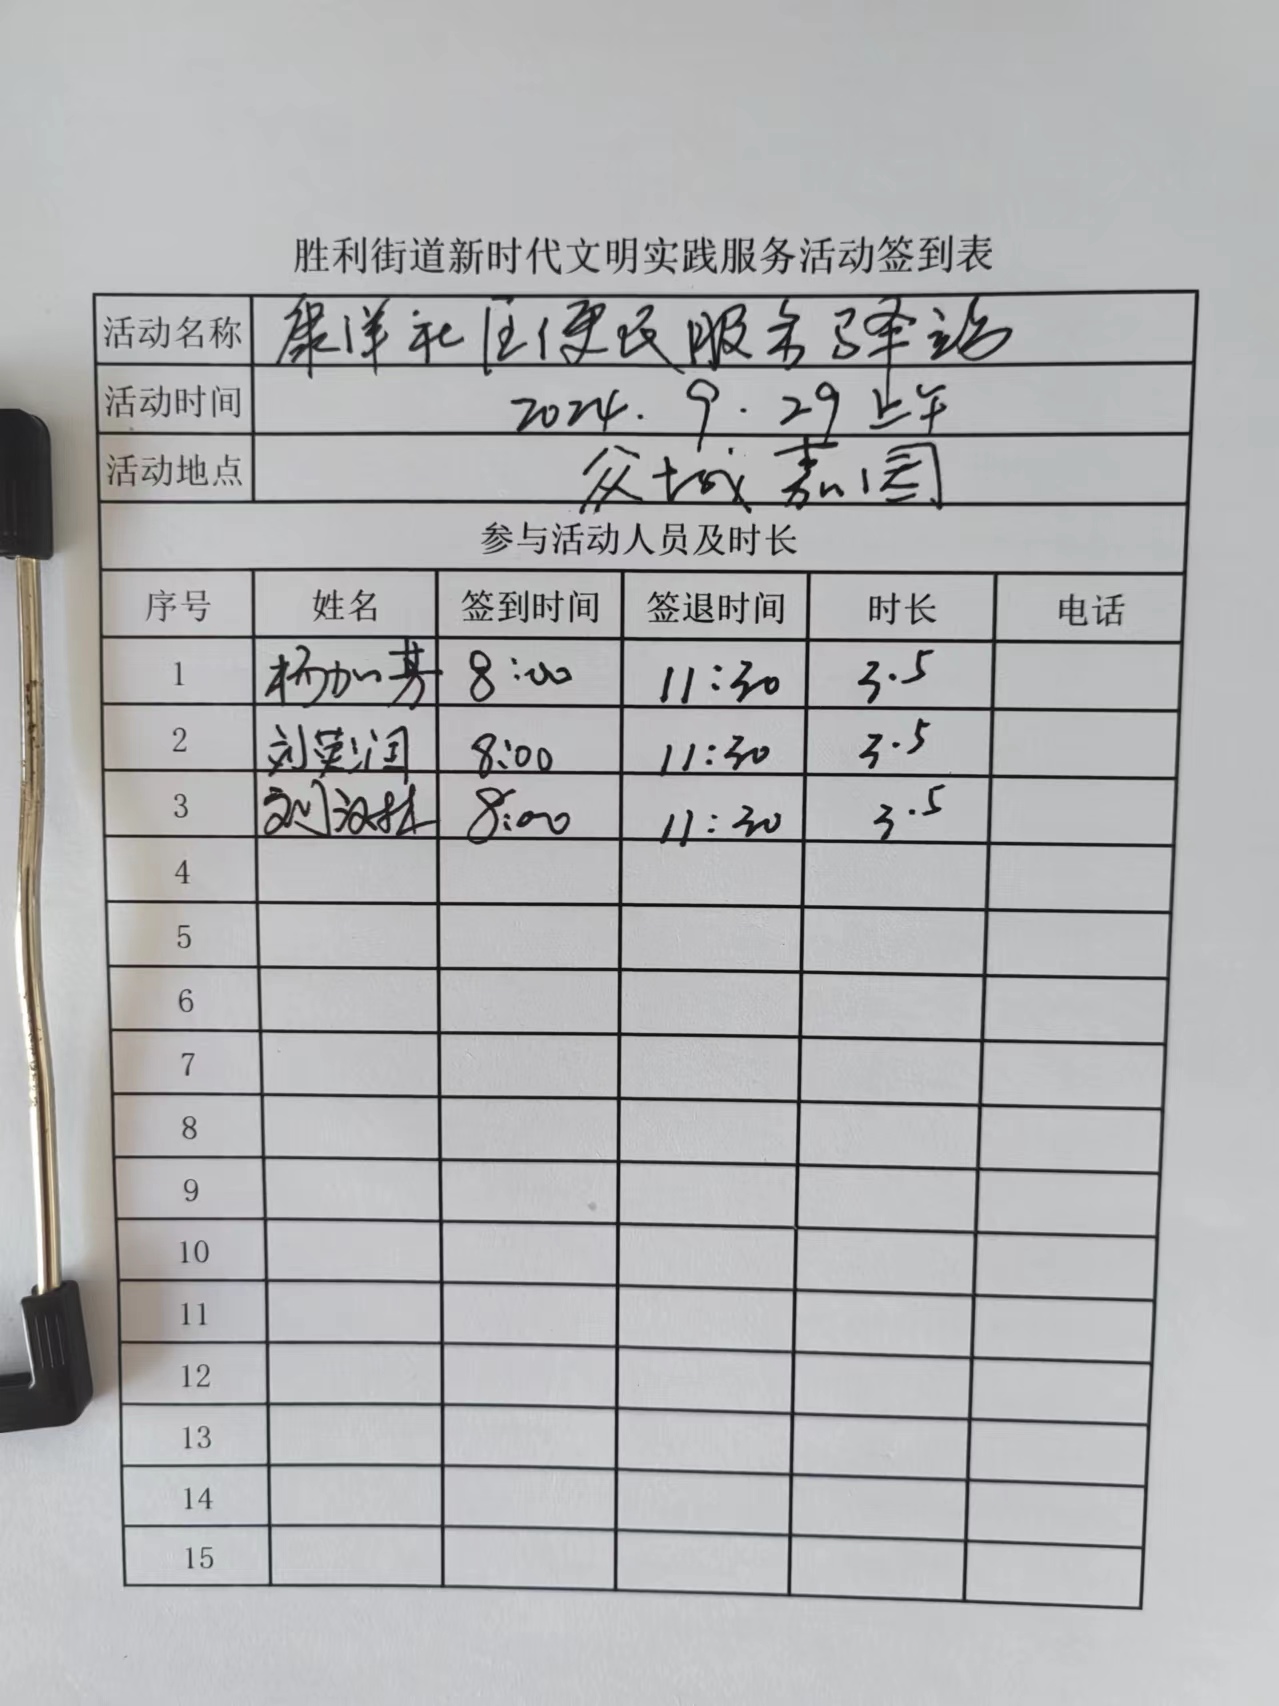 胜利街道新时代文明实践服务活动签到表
活动名称 康洋社区便民服务驿站
活动时间 2024.9.29上午
活动地点 众城嘉园
参与活动人员及时长
序号 姓名 签到时间 签退时间 时长 电话
1 杨加芳 8:00 11:30 3.5
2 刘英润 8:00 11:30 3.5
3 刘汉林 8:00 11:30 3.5
4
5
6
7
8
9
10
11
12
13
14
15